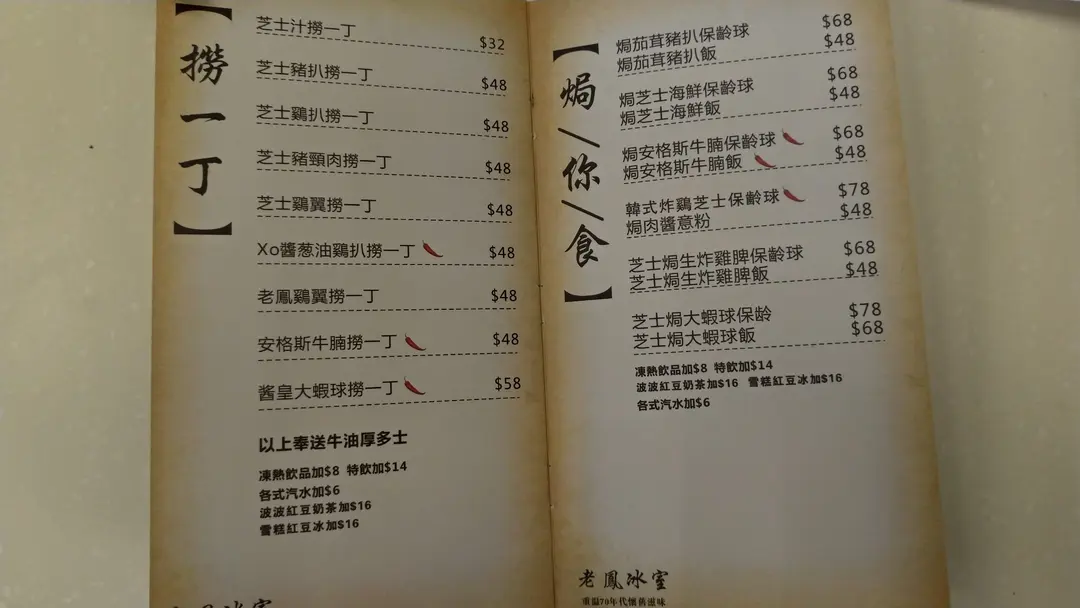 【撈一丁】
芝士汁撈一丁 $32
芝士豬扒撈一丁 $48
芝士鷄扒撈一丁 $48
芝士豬頸肉撈一丁 $48
芝士鷄翼撈一丁 $48
Xo醬葱油鷄扒撈一丁 $48
老鳳鷄翼撈一丁 $48
安格斯牛腩撈一丁 $48
酱皇大蝦球撈一丁 $58
以上奉送牛油厚多士
凍熱飲品加$8 特飲加$14
各式汽水加$6
波波紅豆奶茶加$16
雪糕紅豆冰加$16
【焗/你/食】
焗茄茸豬扒保齡球 $68
焗茄茸豬扒飯 $48
焗芝士海鮮保齡球 $68
焗芝士海鮮飯 $48
焗安格斯牛腩保齡球 $68
焗安格斯牛腩飯 $48
韓式炸鷄芝士保齡球 $78
焗肉醬意粉 $48
芝士焗生炸雞脾保齡球 $68
芝士焗生炸雞脾飯 $48
芝士焗大蝦球保龄 $78
芝士焗大蝦球飯 $68
凍熱飲品加$8 特飲加$14
波波紅豆奶茶加$16 雪糕紅豆冰加$16
各式汽水加$6
老鳳冰室
重溫70年代懷舊滋味